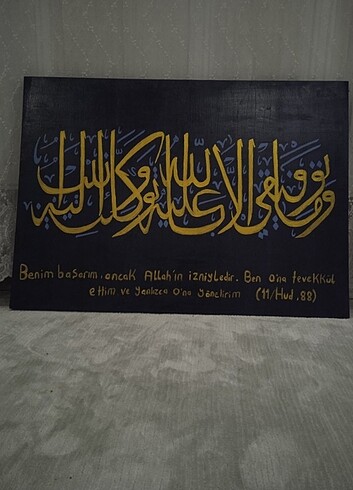 وما توفيقي إلا بالله عليه توكلت وإليه أنيب
Benim başarım, ancak Allah'ın izniyledir. Ben O'na tevekkül
ettim ve yanlızca O'na yönelirim (11/Hud, 88)